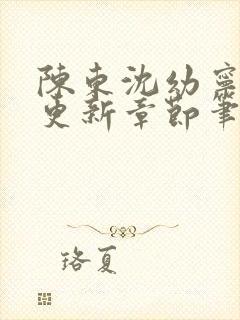 陳東沈幼寧
更新章節筆
珞夏